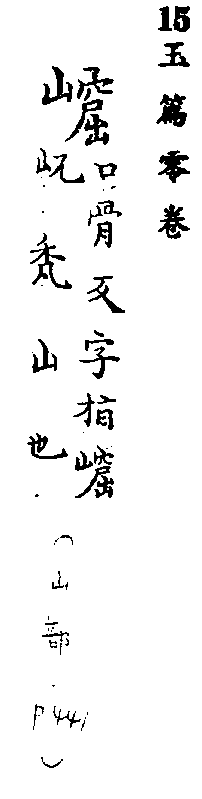 15玉篇零卷
口骨反字指
屼禿山也
（山部 P441）